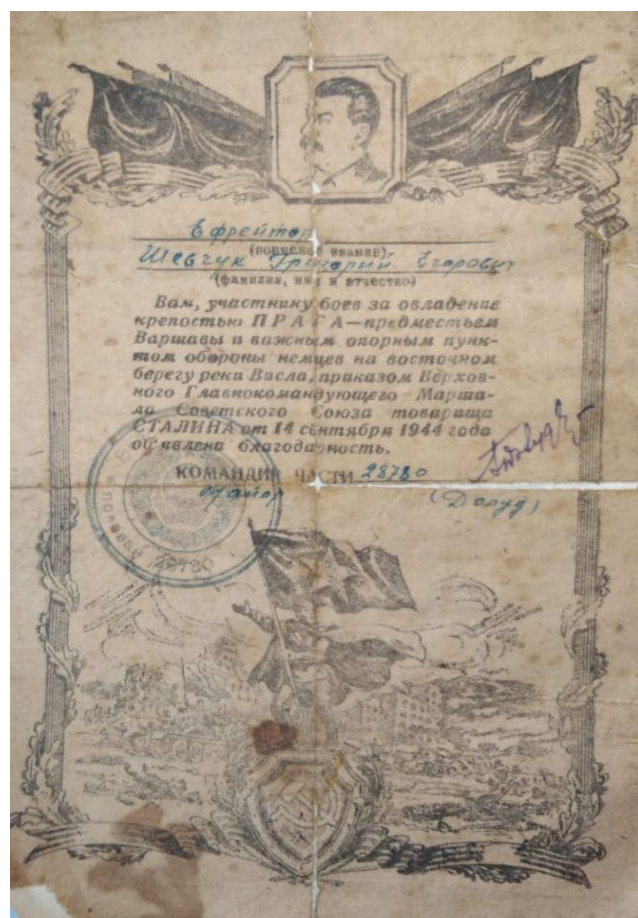 Ефрейтор
(воинское звание)
Шевчук Григорий Егорович
(фамилия, имя и отчество)
Вам, участнику боев за овладение
крепостью ПРАГА—предместьем
Варшавы и важным опорным пунк-
том обороны немцев на восточном
берегу реки Висла, приказом Верхов-
ного Главнокомандующего Марша-
ла Советского Союза товарища
СТАЛИНА от 14 сентября 1944 года
объявлена благодарность.
КОМАНДИР ЧАСТИ 28780
майор (Долуд)
28780